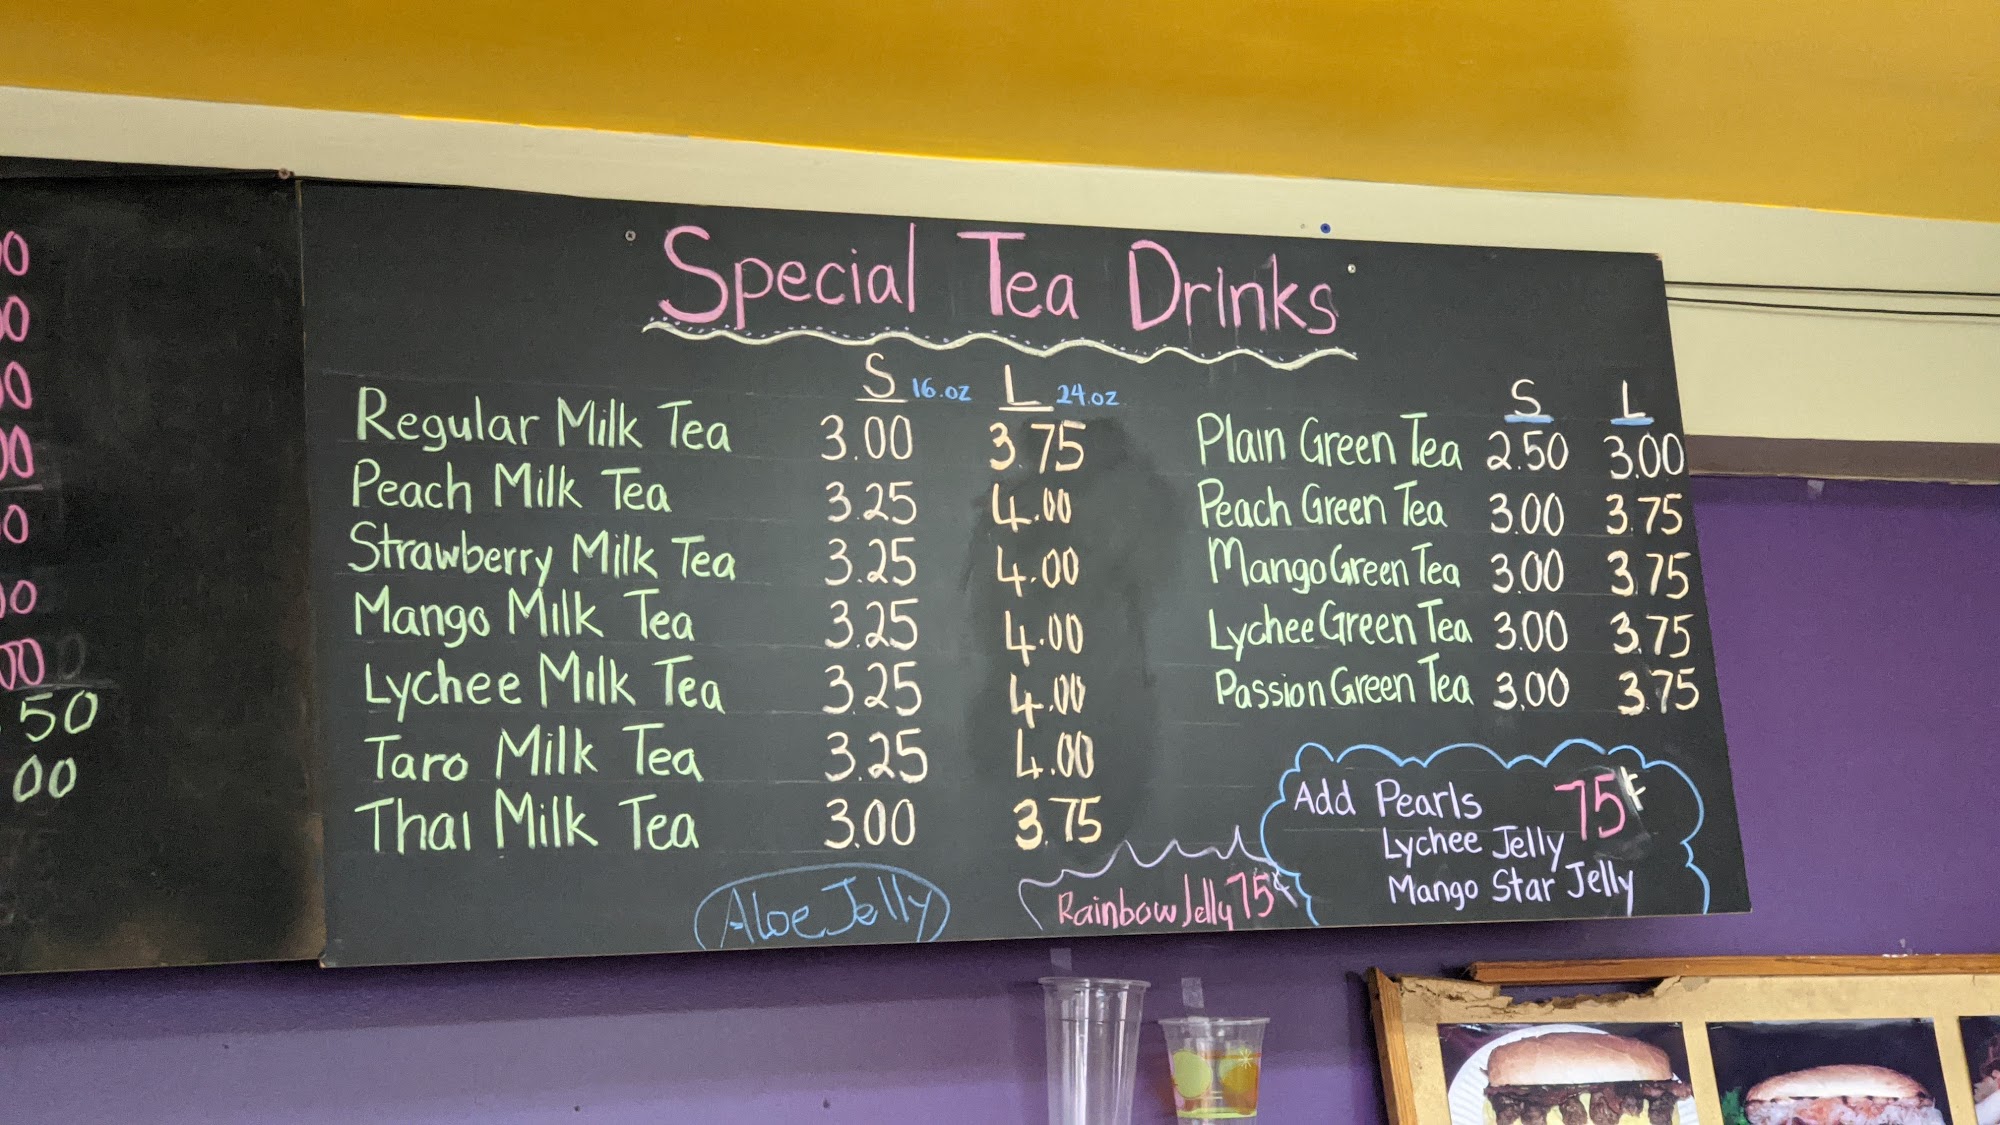 Special Tea Drinks
S 16.oz L 24.oz
Regular Milk Tea 3.00 3.75
Peach Milk Tea 3.25 4.00
Strawberry Milk Tea 3.25 4.00
Mango Milk Tea 3.25 4.00
Lychee Milk Tea 3.25 4.00
Taro Milk Tea 3.25 4.00
Thai Milk Tea 3.00 3.75
S L
Plain Green Tea 2.50 3.00
Peach Green Tea 3.00 3.75
Mango Green Tea 3.00 3.75
Lychee Green Tea 3.00 3.75
Passion Green Tea 3.00 3.75
Add Pearls 75¢
Lychee Jelly
Mango Star Jelly
Aloe Jelly
Rainbow Jelly 75¢
50
00